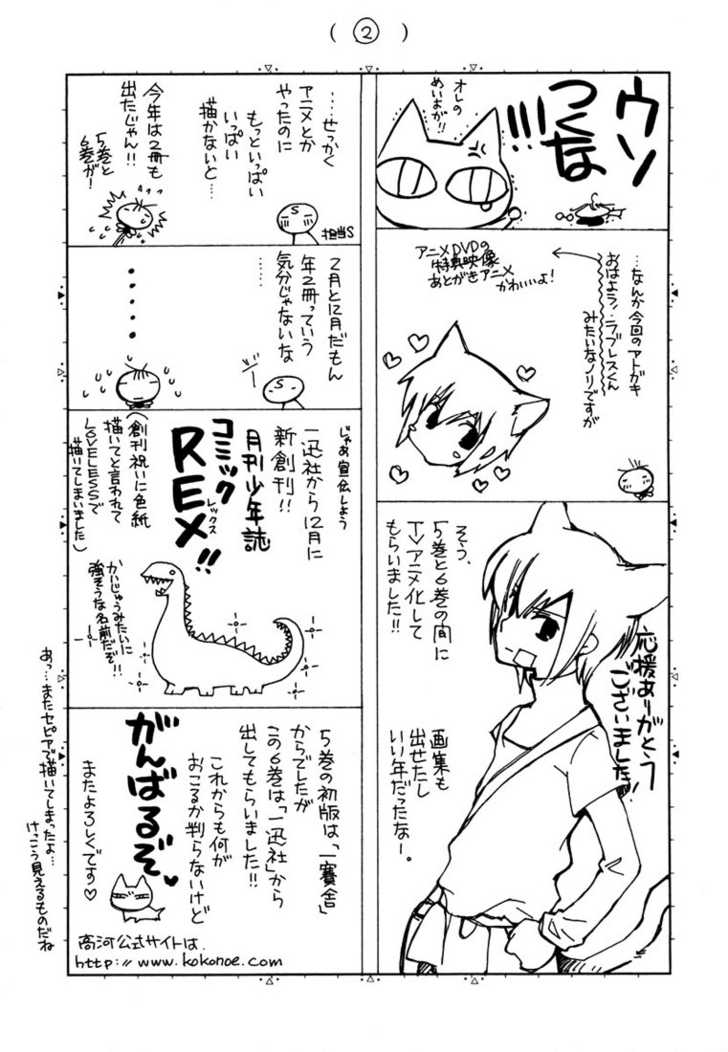 (②)
ウソ
つくな
!!!
オレの
めいよが!!
…なんか今回のアトガキ
おはよう!ラブレスくん
みたいなノリですが
アニメDVDの
特典映像
あとがきアニメ
かわいいよ!
そう、
5巻と6巻の間に
TVアニメ化して
もらいました!!
応援ありがとう
ございました!
画集も
出せたし
いい年だったなー。
……せっかく
アニメとか
やったのに
もっといっぱい
いっぱい
描かないと…
担当S
S
今年は2冊も
出たじゃん!!
5巻と
6巻が!
2月と12月だもん
年2冊っていう
気分じゃないな
S
ジー
・・・・・・
じゃあ宣伝しよう
一迅社から12月に
新創刊!!
月刊少年誌
コミック
REX!!
レックス
(創刊祝いに色紙
描いてと言われて
LOVELESSで
描いてしまいました)
かいじゅうみたいに
強そうな名前だぞ!!
5巻の初版は、「一賽舎」
からでしたが
この6巻は、「一迅社」から
出してもらいました!!
これからも何が
おこるか判らないけど
がんばるぞ
またよろしくです♡
高河公式サイトは、
http://www.kokonoe.com
あっ…またセピアで描いてしまったよ…
けっこう見えるものだね